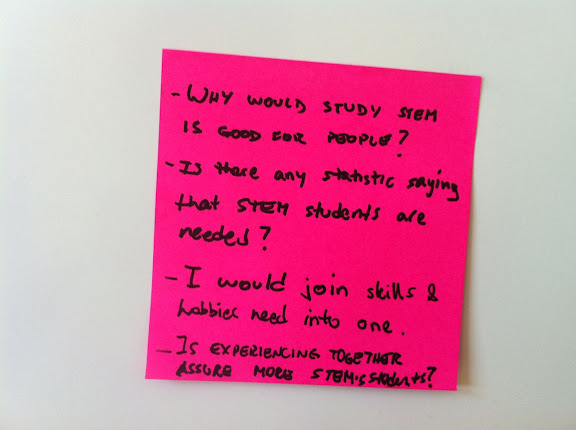 - WHY WOULD STUDY STEM
IS GOOD FOR PEOPLE?
- Is there any statistic saying
that STEM students are
needed?
- I would join skills &
hobbies need into one.
- IS EXPERIENCING TOGETHER
ASSURE MORE STEM's students?